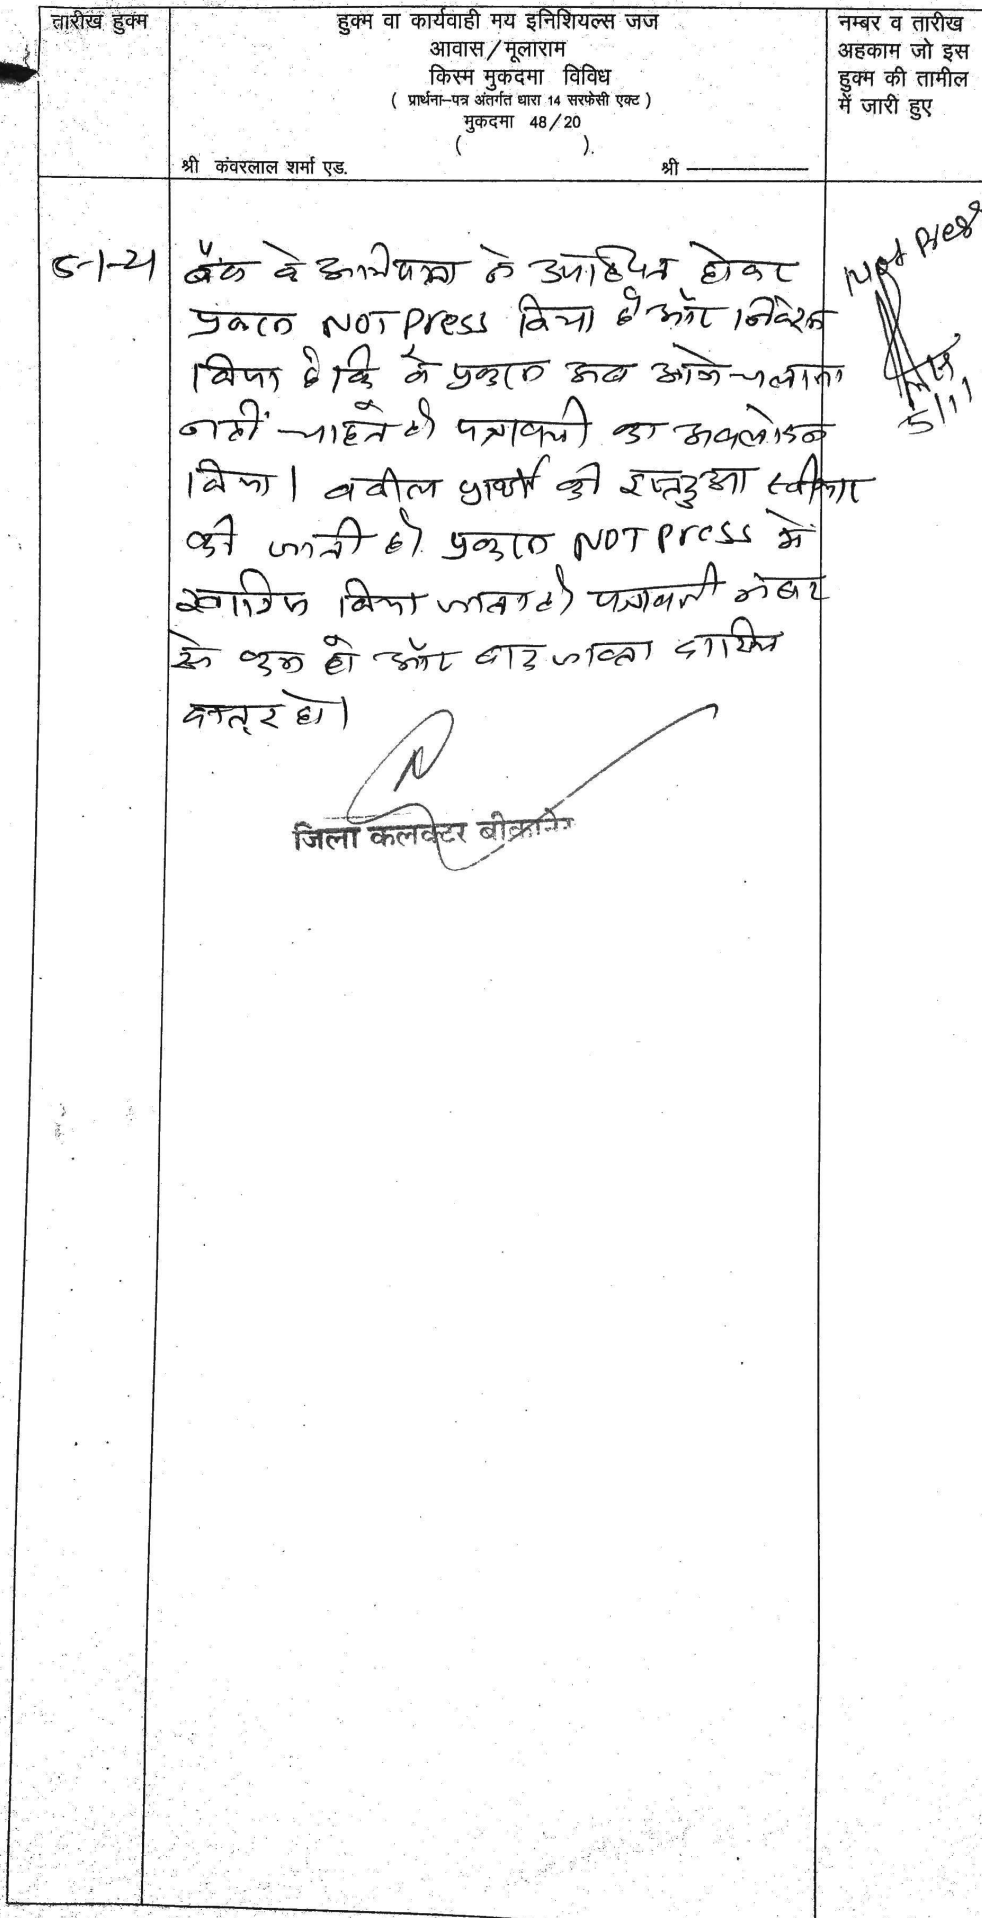 तारीख हुक्म
हुक्म वा कार्यवाही मय इनिशियल्स जज
आवास/मूलाराम
किस्म मुकदमा विविध
( प्रार्थना-पत्र अंतर्गत धारा 14 सरफेसी एक्ट )
मुकदमा 48/20
( ).
श्री कंवरलाल शर्मा एड. श्री ————
नम्बर व तारीख
अहकाम जो इस
हुक्म की तामील
में जारी हुए
5-1-21
बैंक के अधिवक्ता ने उपस्थित होकर
प्रकरण NOT Press किया है और निवेदन
किया है कि वे प्रकरण अब आगे चलाना
नहीं चाहते है। पत्रावली का अवलोकन
किया। वकील प्रार्थी की इस्तदुआ स्वीकार
की जाती है। प्रकरण NOT Press में
खारिज किया जाता है। पत्रावली नंबर
से कम हो और बाद जाब्ता दाखिल
दफ्तर हो।
Not Press
5/1/
जिला कलक्टर बीकानेर